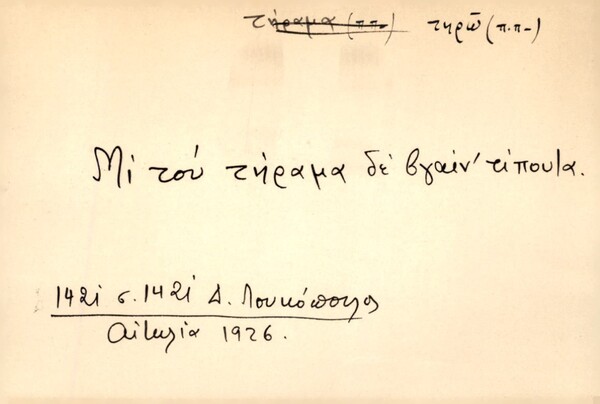 τήραμα (π.π.) τηρῶ (π.π.)
Μὶ τοὺ τήραμα δὲ βγαίν' τίπουτα.
1421 σ. 1421 Δ. Λουκόπουλος
Αἰτωλία 1926.